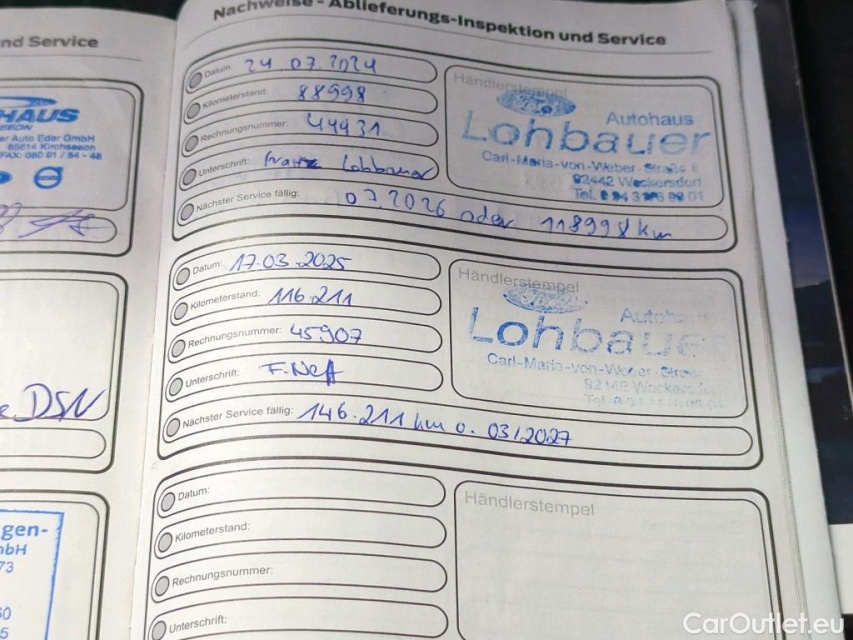 nd Service
HAUS
er Auto Eder GmbH
85614 Kirchseeon
FAX: 080 91 / 54 - 48
e DSN
gen-
bH
73
60
5
Nachweise - Ablieferungs-Inspektion und Service
Datum: 24 07 2024
Kilometerstand: 88998
Rechnungsnummer: 44431
Unterschrift: Franz Lohbauer
Nächster Service fällig: 07 2026 oder 118998 km
Händlerstempel
Ford
Autohaus
Lohbauer
Carl-Maria-von-Weber-Straße
92442 Wackersdorf
Tel.
Datum: 17.03.2025
Kilometerstand: 116.211
Rechnungsnummer: 45907
Unterschrift: F. Neff
Nächster Service fällig: 146.211 km o. 03/2027
Händlerstempel
Ford
Autohaus
Lohbauer
Carl-Maria-von-Weber-Straße
Datum:
Kilometerstand:
Rechnungsnummer:
Unterschrift:
Händlerstempel
CarOutlet.eu